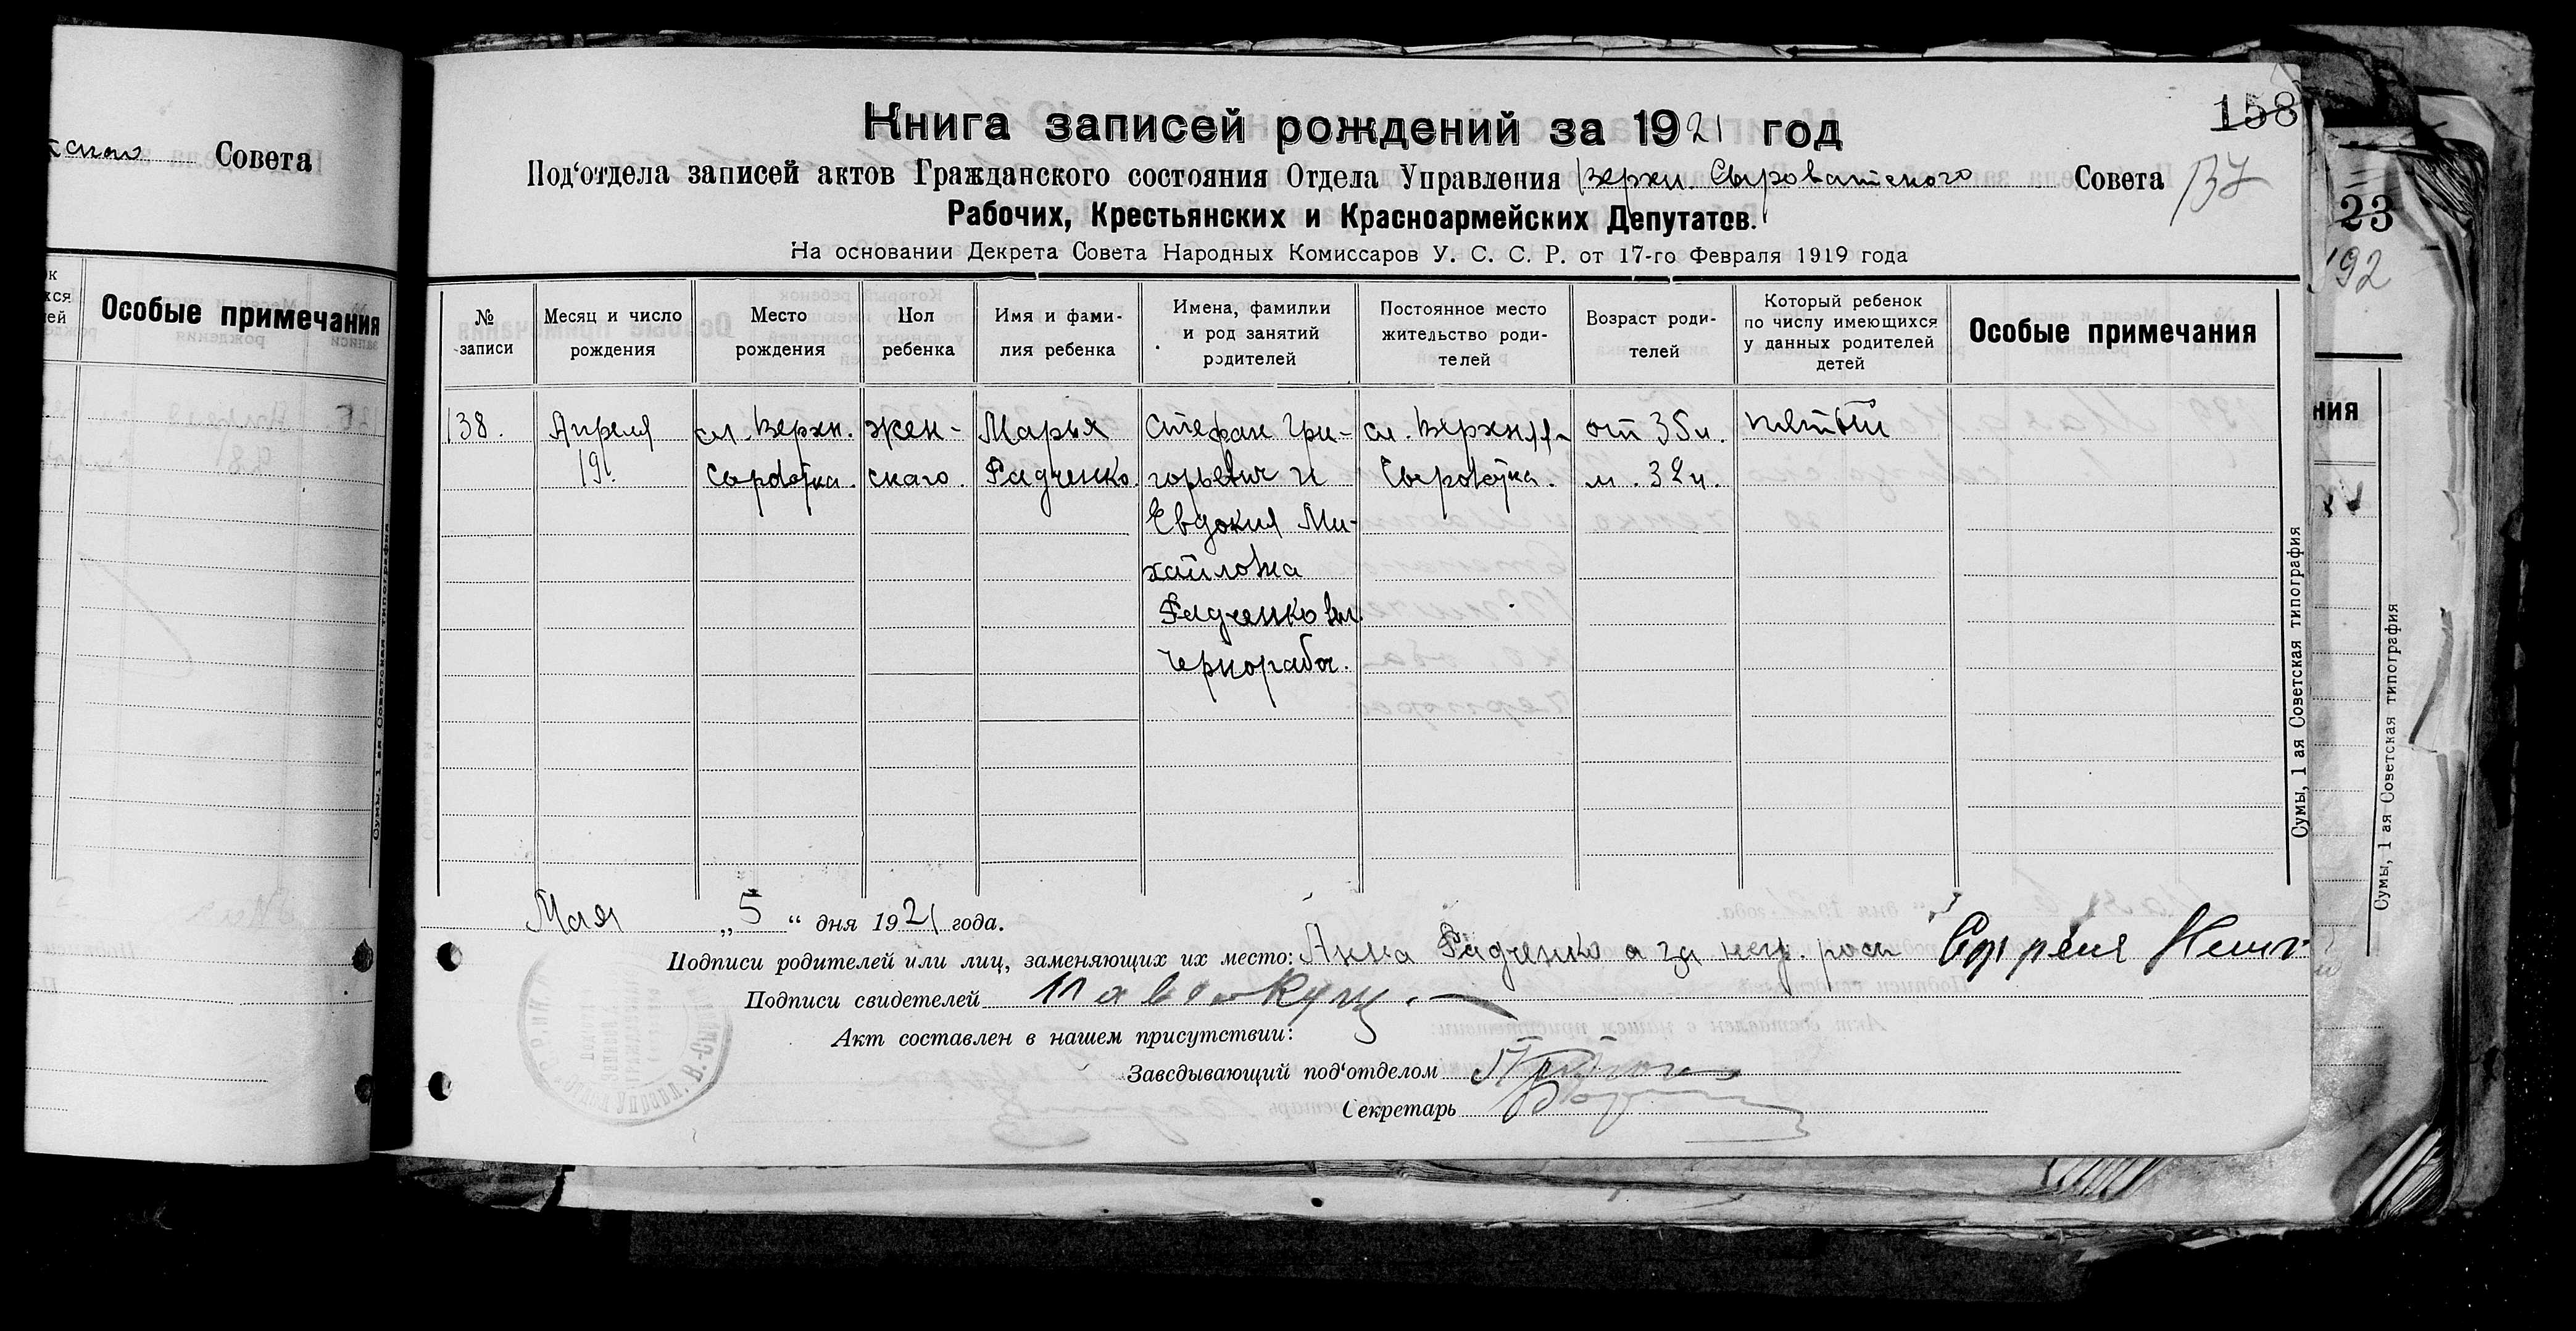 Совета
Особые примечания
Сумы, 1 ая Советская типография
158
137
Книга записей рождений за 1921 год
Под‘отдела записей актов Гражданского состояния Отдела Управления Верхн. Сыроватского Совета
Рабочих, Крестьянских и Красноармейских Депутатов.
На основании Декрета Совета Народных Комиссаров У. С. С. Р. от 17-го Февраля 1919 года
№ записи
Месяц и число рождения
Место рождения
Пол ребенка
Имя и фамилия ребенка
Имена, фамилии и род занятий родителей
Постоянное место жительство родителей
Возраст родителей
Который ребенок по числу имеющихся у данных родителей детей
Особые примечания
138. Апреля сл. Верхн. жен- Марья Стефан Гри- сл. Верхн от 35 л. пятый
19. Сыроватка. скаго. Радченко. горьевич и Сыроватка. м. 32 л.
Евдокия Ми-
хайловна
Радченко
чернорабоч.
Мая „ 5 “ дня 1921 года.
Подписи родителей или лиц, заменяющих их место: Анна Радченко а за негр. росп
Подписи свидетелей
Акт составлен в нашем присутствии:
Заведывающий под‘отделом
Секретарь
Сумы, 1 ая Советская типография
23
192
ния
Сумы, 1 ая Советская типография